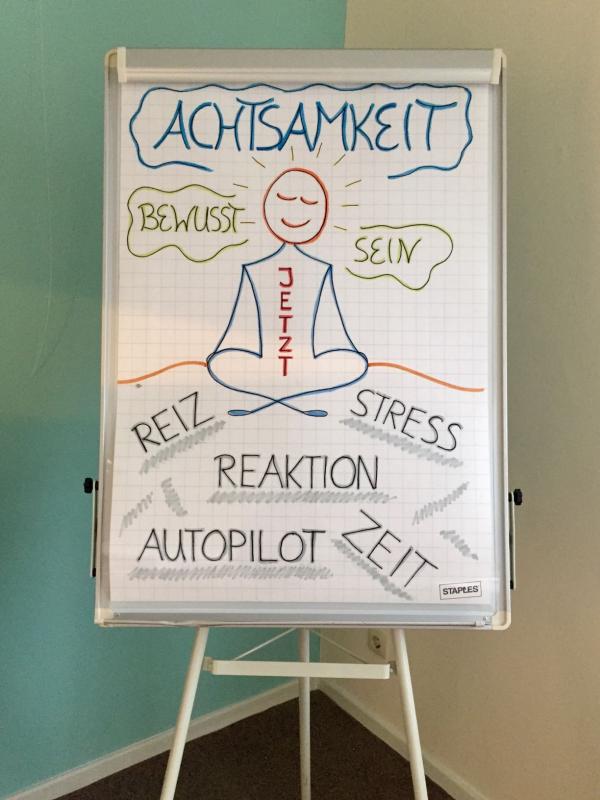 ACHTSAMKEIT
BEWUSST
SEIN
JETZT
REIZ
STRESS
REAKTION
AUTOPILOT
ZEIT
STAPLES